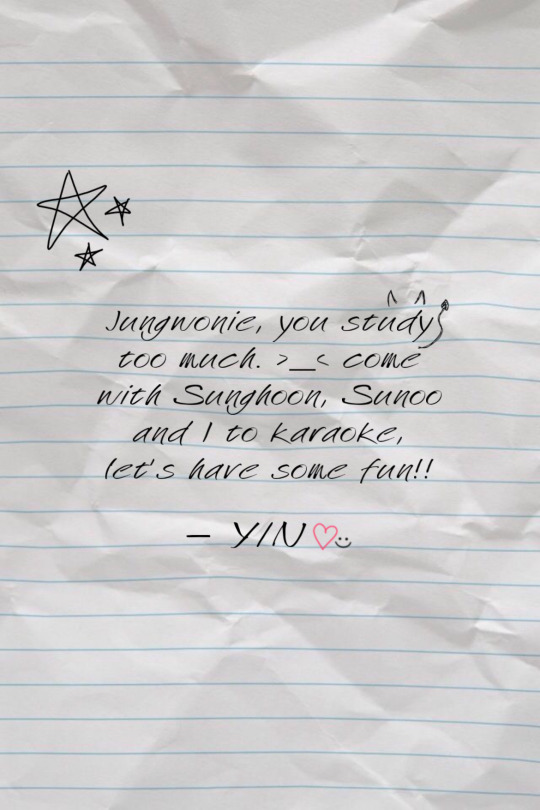 Jungwonie, you study
too much. >_< come
with Sunghoon, Sunoo
and I to karaoke,
let's have some fun!!
– YIN♡☺